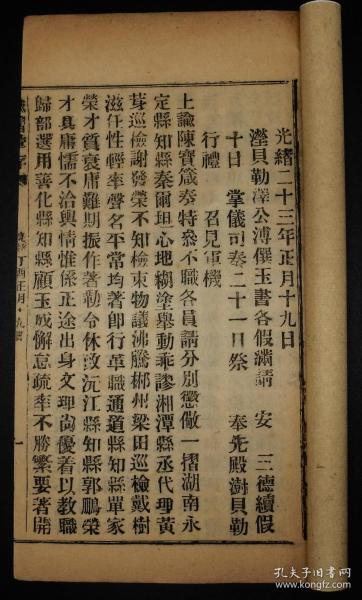 光緒二十三年正月十九日
瀅貝勒澤公溥僎玉書各假滿請 安 三德續假
十日 掌儀司奏二十一日祭 奉先殿澍貝勒
行禮 召見軍機
上諭陳寶箴奏特參不職各員請分別懲儆一摺湖南永
定縣知縣秦爾坦心地糊塗舉動乖謬湘潭縣丞代理黃
茅巡檢謝發榮不知檢束物議沸騰郴州梁田巡檢戴樹
滋任性輕率聲名平常均著即行革職通道縣知縣單家
榮才質衰庸難期振作著勒令休致沅江縣知縣郭鵬榮
才具庸懦不洽輿情惟係正途出身文理尚優着以教職
歸部選用善化縣知縣顧玉成懈怠疏率不勝繁要著開
丁酉正月十九
一
孔夫子旧书网